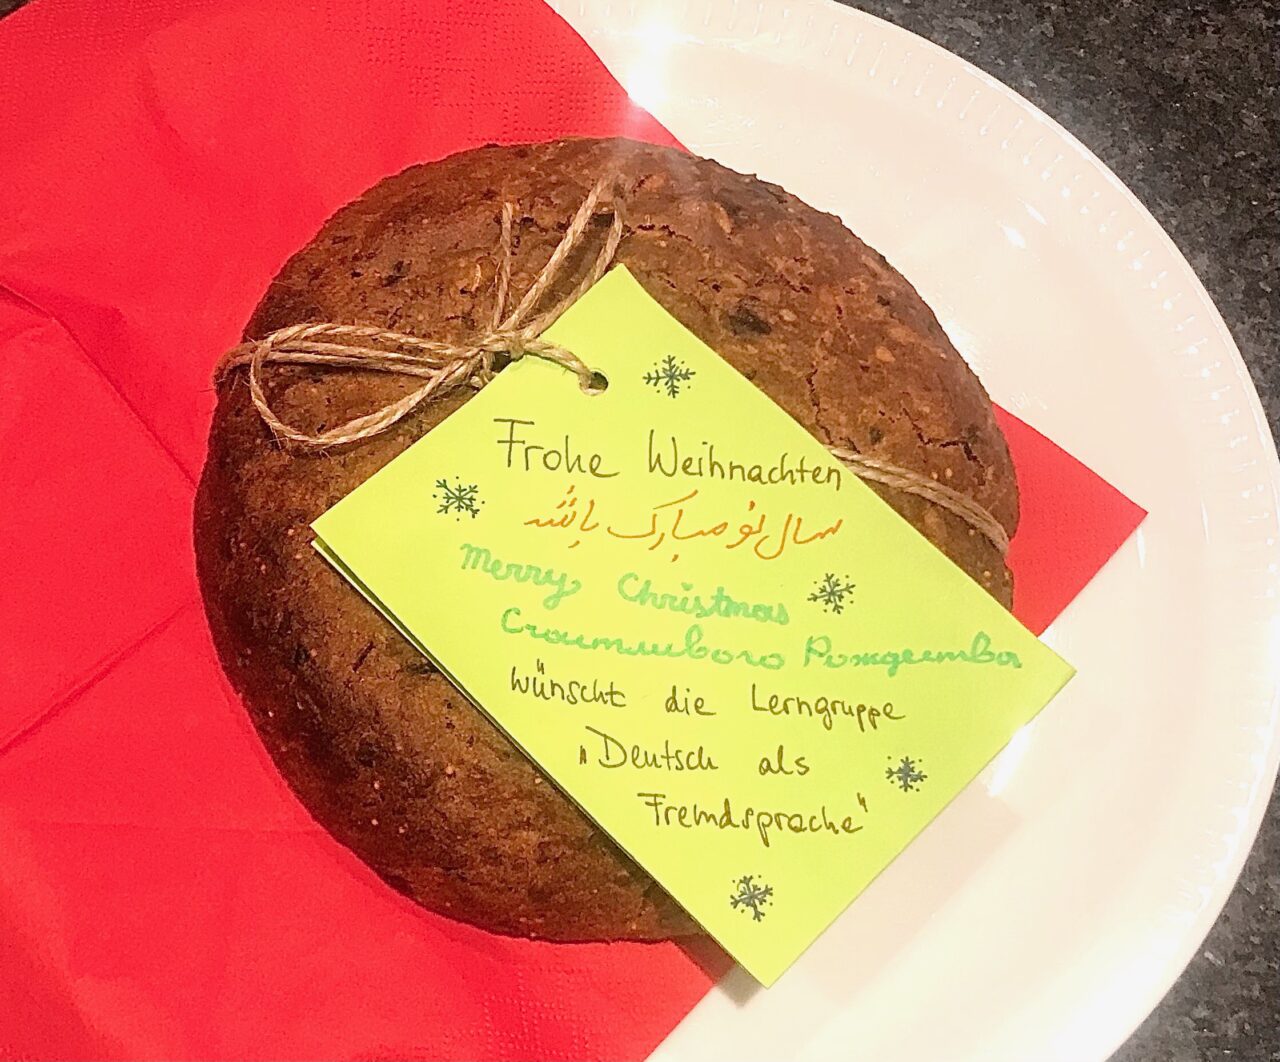 Frohe Weihnachten
سال نو مبارک باشد
Merry Christmas
Счастливого Рождества
wünscht die Lerngruppe
„Deutsch als
Fremdsprache“